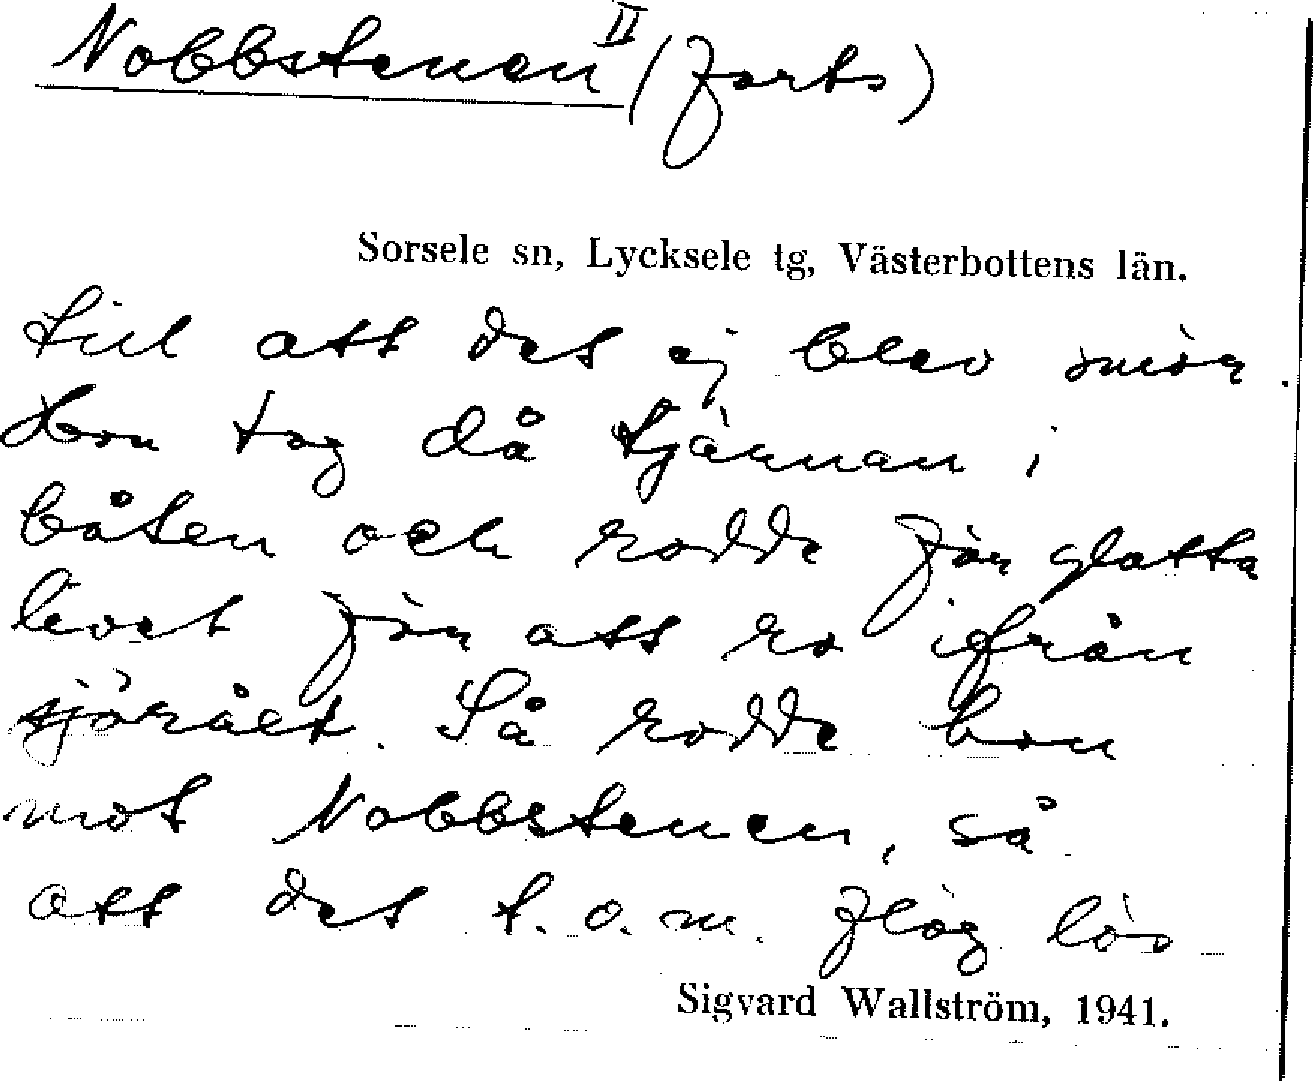 Nobbstenen II (forts)
Sorsele sn, Lycksele tg, Västerbottens län.
till att det ej blev smör.
Hon tog då tjärnan i
båten och rodde för glatta
livet för att ro ifrån
sjörået. Så rodde hon
mot Nobbstenen, så
att det t.o.m. flög lös
Sigvard Wallström, 1941.